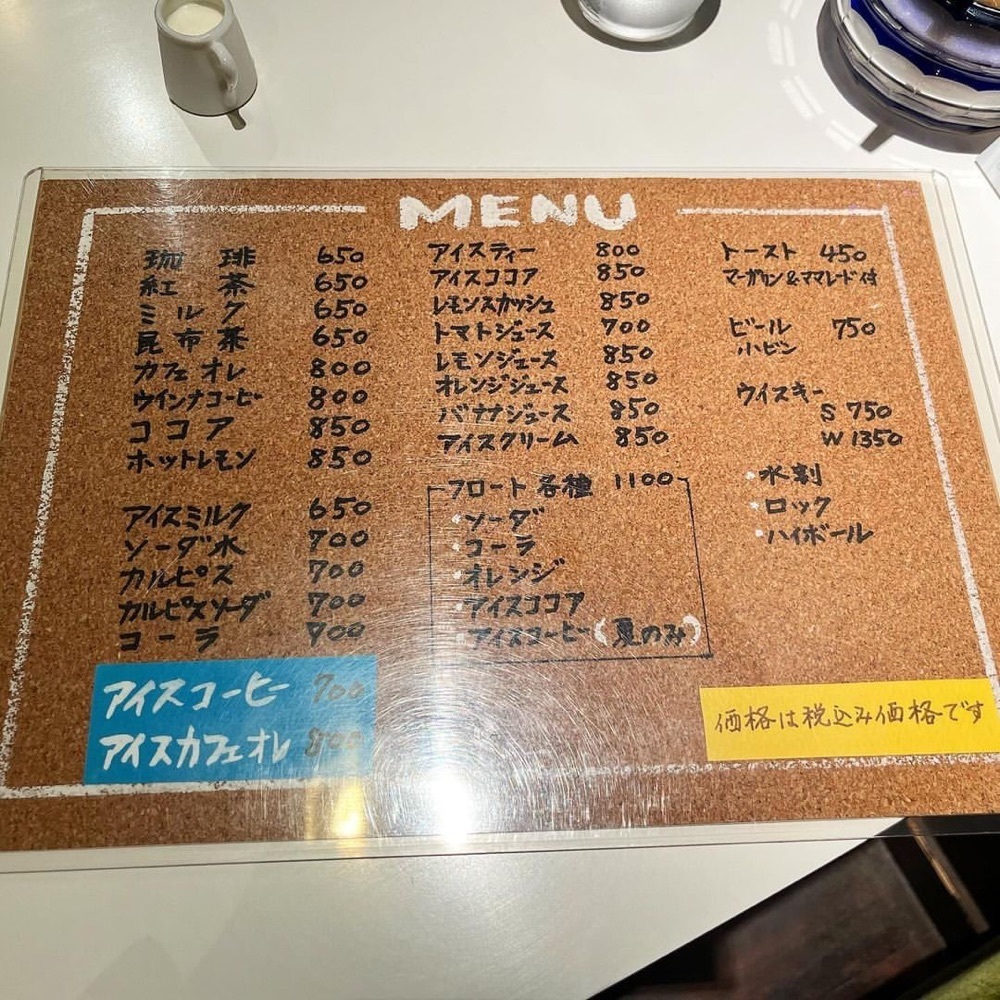 MENU
珈琲 650
紅茶 650
ミルク 650
昆布茶 650
カフェオレ 800
ウインナコーヒー 800
ココア 850
ホットレモン 850
アイスミルク 650
ソーダ水 700
カルピス 700
カルピスソーダ 700
コーラ 700
アイスコーヒー 700
アイスカフェオレ 800
アイスティー 800
アイスココア 850
レモンスカッシュ 850
トマトジュース 700
レモンジュース 850
オレンジジュース 850
バナナジュース 850
アイスクリーム 850
フロート各種 1100
・ソーダ
・コーラ
・オレンジ
・アイスココア
・アイスコーヒー(夏のみ)
トースト 450
マーガリン&ママレード付
ビール 750
小ビン
ウイスキー
S 750
W 1350
・水割
・ロック
・ハイボール
価格は税込み価格です